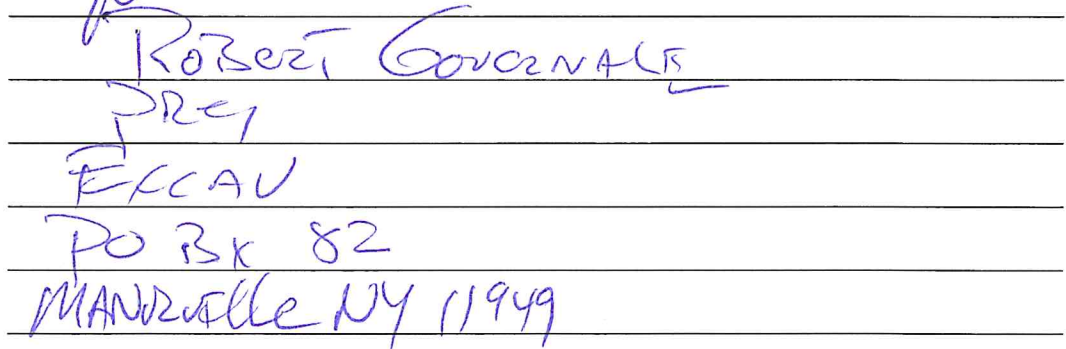 Robert Governale
Pres
Excav
PO Bx 82
Manorville NY 11949